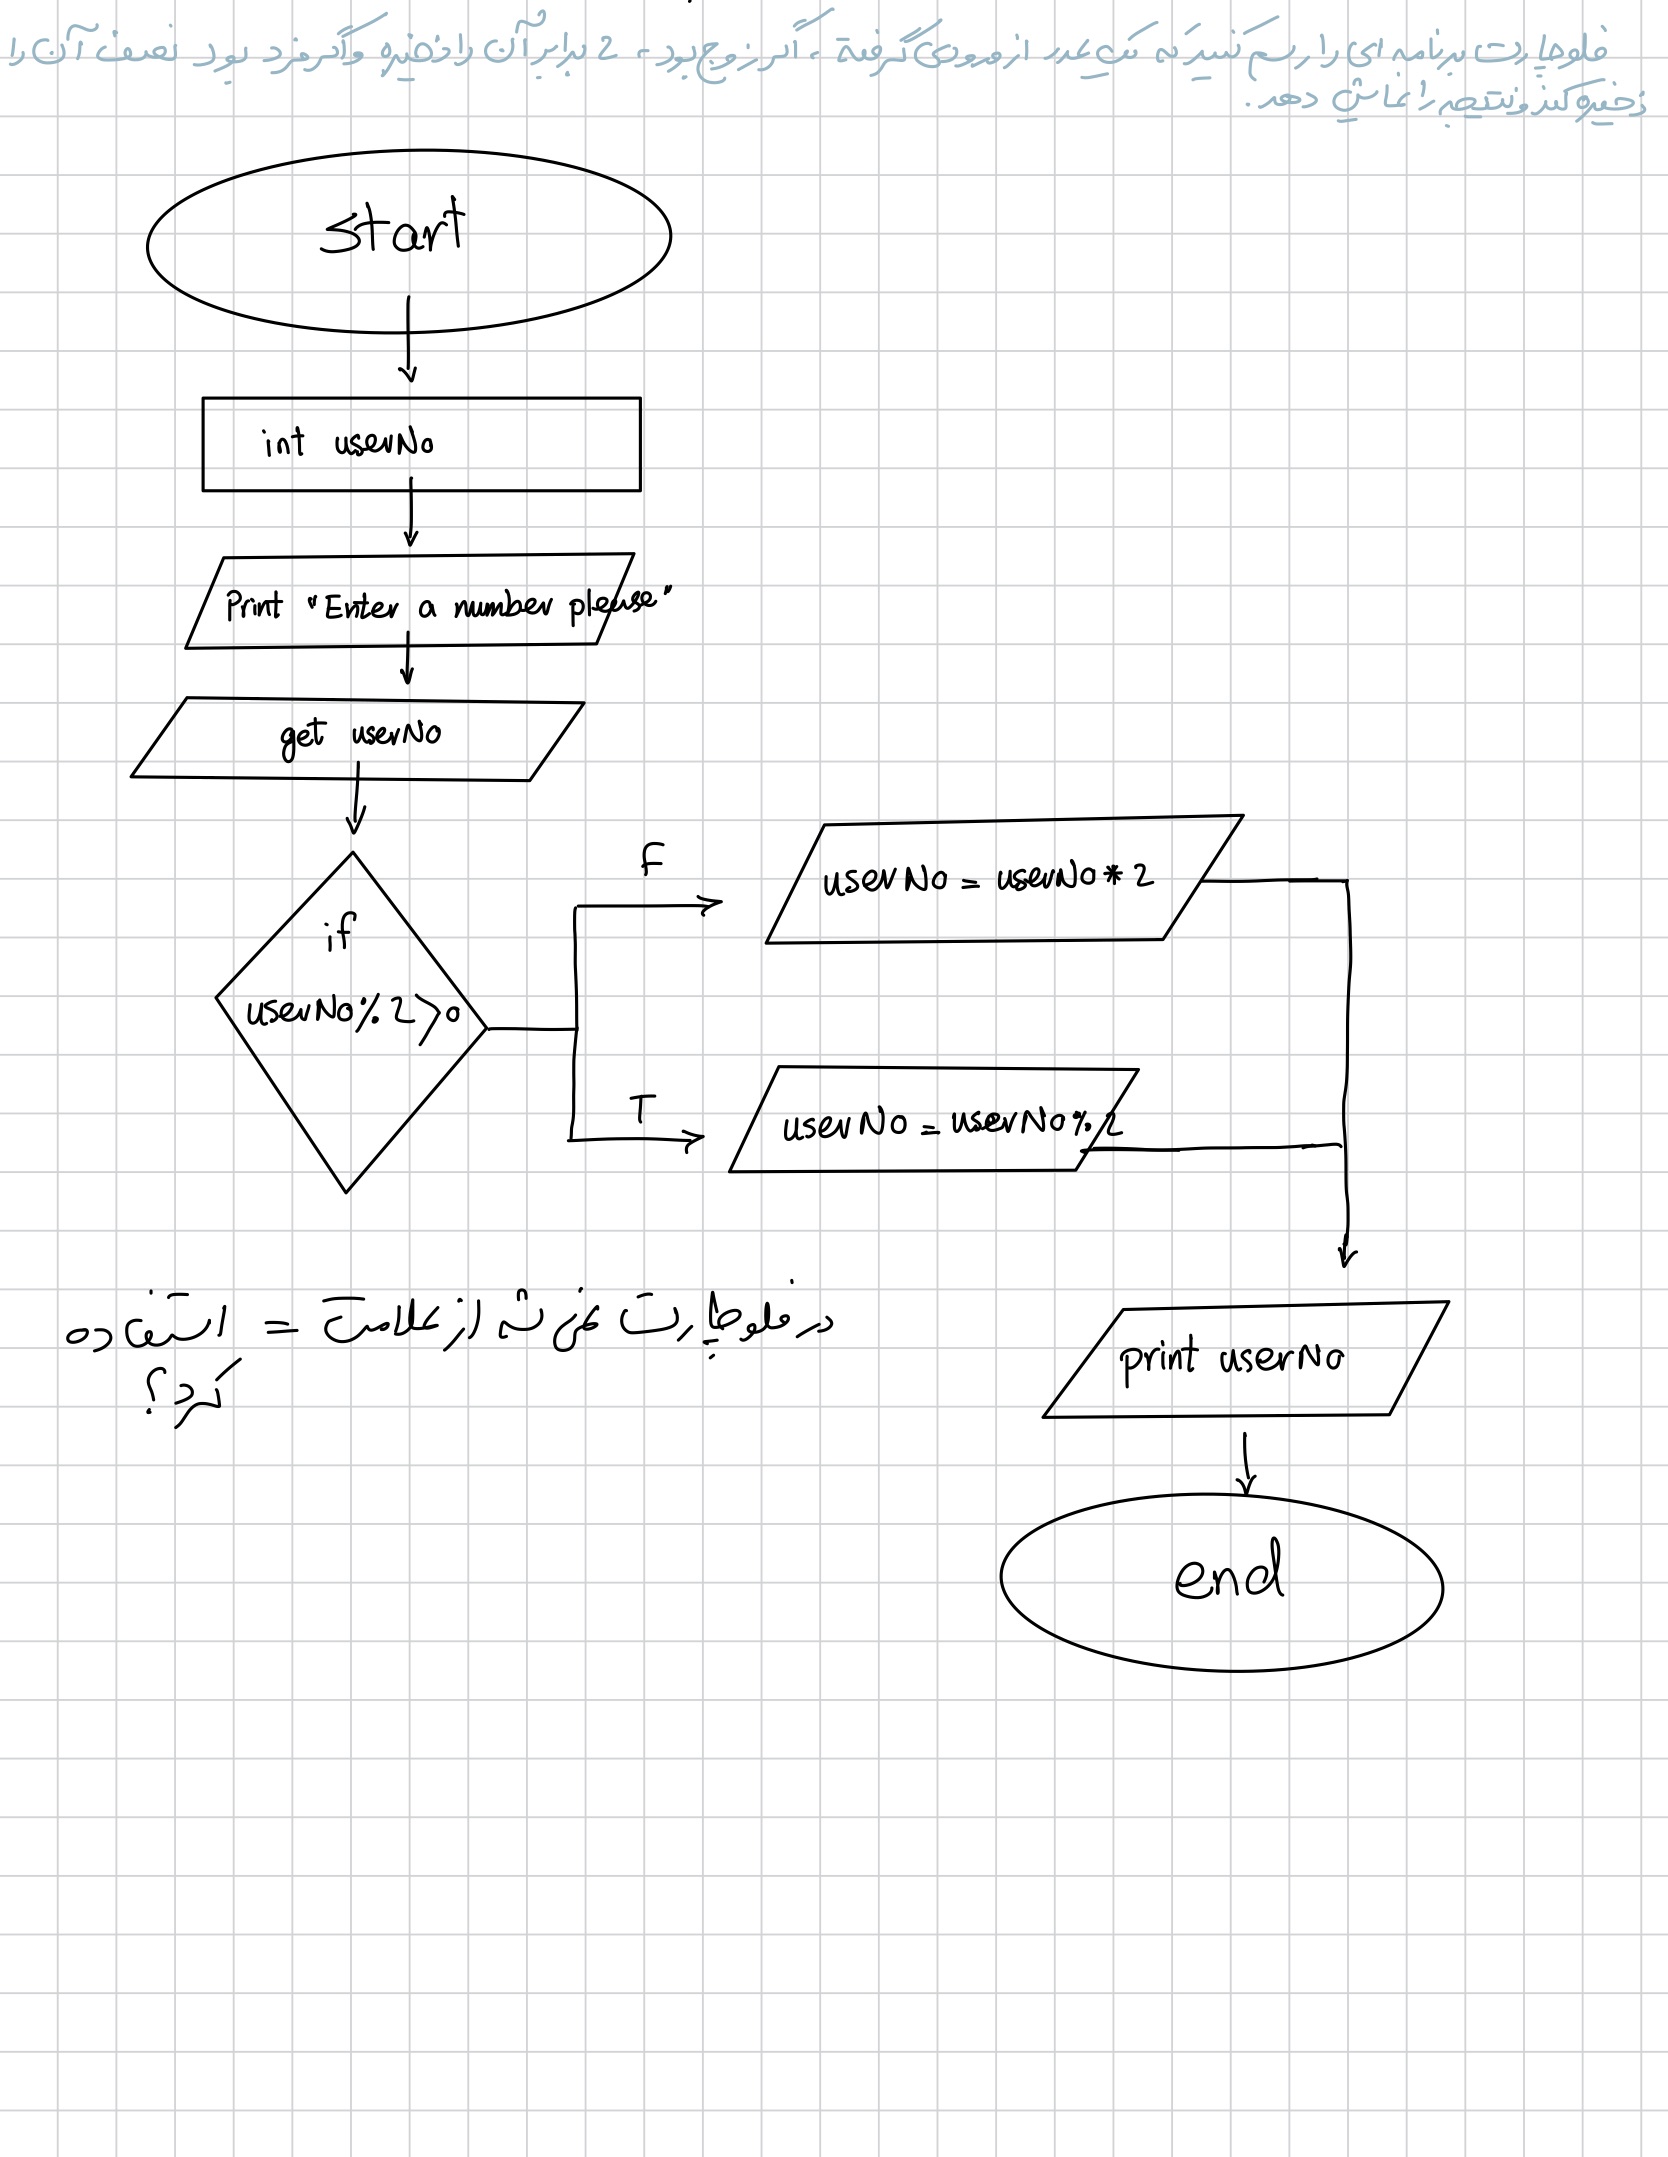 فلوچارت برنامه ای را رسم کنید که یک عدد از ورودی گرفته ، اگر زوج بود ، 2 برابر آن را ذخیره و اگر فرد بود نصف آن را
ذخیره کند و نتیجه را نمایش دهد.
Start
int userNo
Print "Enter a number please"
get userNo
if
userNo%2>0
F
userNo = userNo*2
T
userNo = userNo%2
در فلوچارت نمی شه از علامت = استفاده
کرد؟
print userNo
end